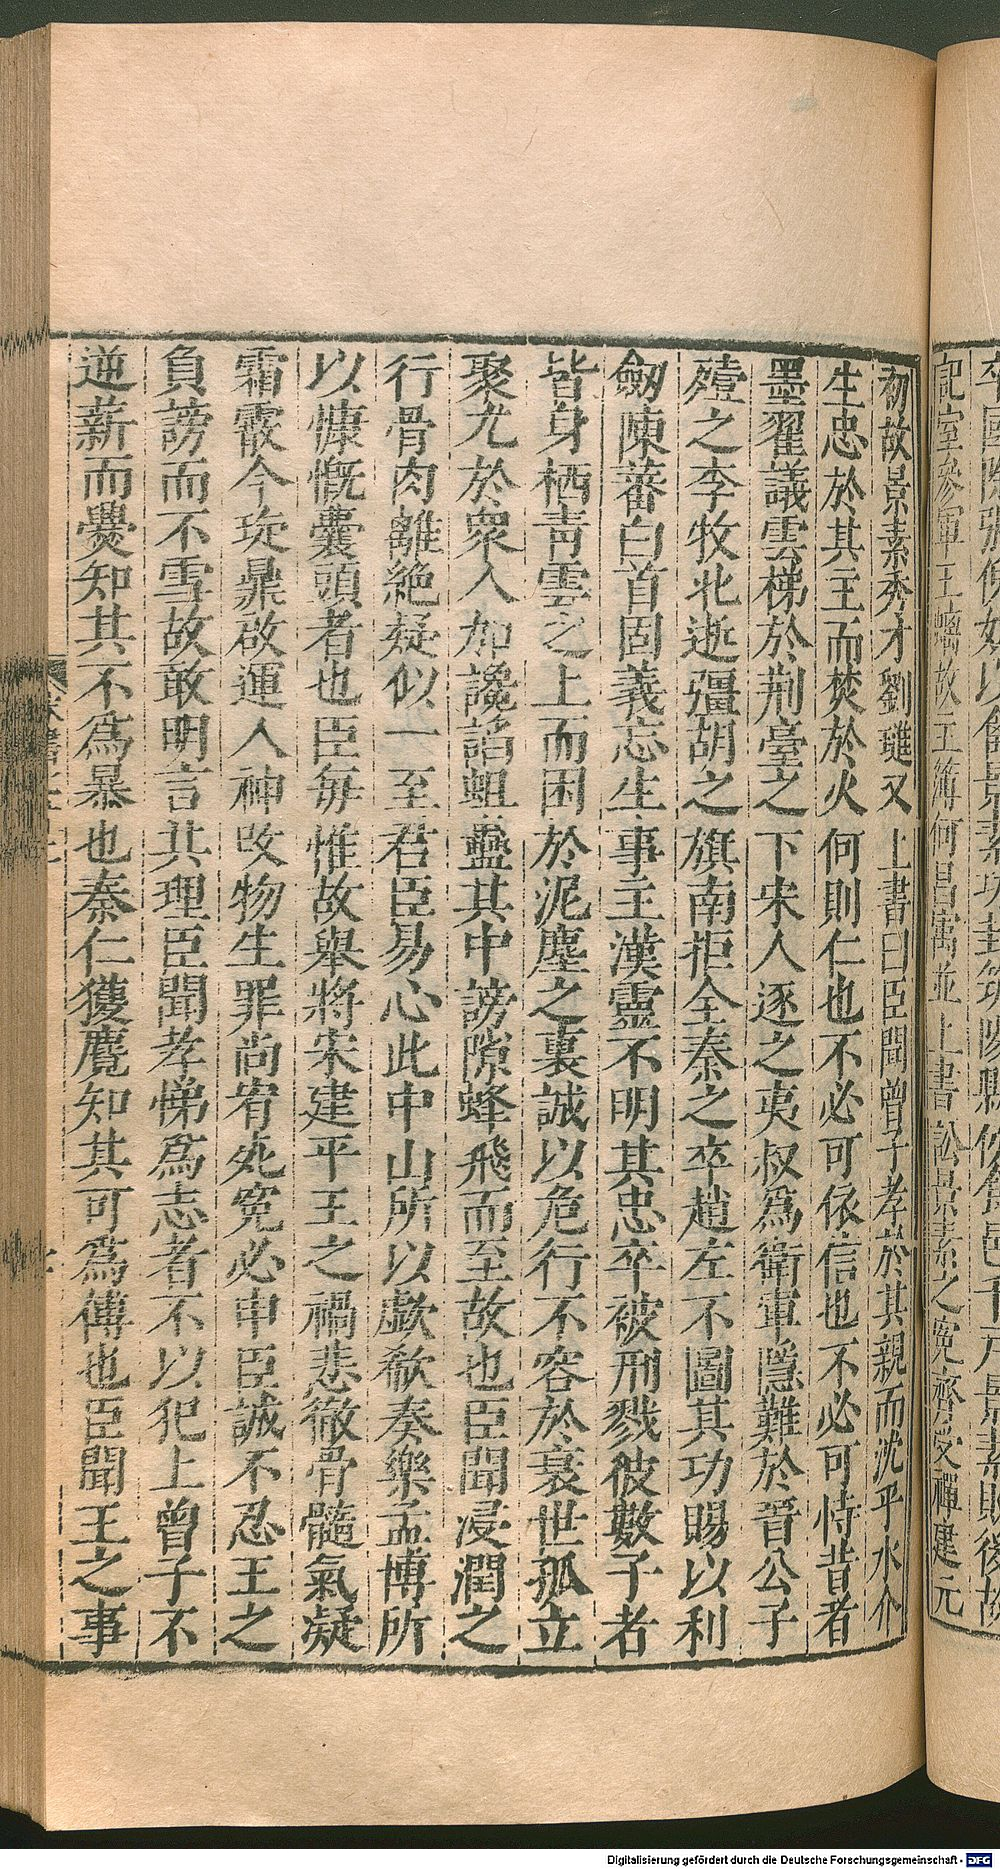 記室參軍王螭故主簿何昌寓並上書訟景素之寃齊受禪建元
初故景素秀才劉璡又上書曰臣聞曾子孝於其親而沈乎水介
生忠於其主而焚於火何則仁也不必可依信也不必可恃昔者
墨翟議雲梯於荆臺之下宋人逐之夷叔爲衛軍隱難於晉公子
殪之李牧北逝彊胡之旗南拒全秦之卒趙左不圖其功賜以利
劒陳蕃白首固義忘生事主漢靈不明其忠卒被刑戮彼數子者
皆身栖靑雲之上而困於泥塵之裏誠以危行不容於衰世孤立
聚尤於衆人加讒諂蛆蠱其中謗隙蜂飛而至故也臣聞浸潤之
行骨肉離絶疑似一至君臣易心此中山所以歔欷奏樂孟博所
以慷慨囊頭者也臣每惟故舉將宋建平王之禍悲徹骨髓氣凝
霜霰今琁鼎啟運人神改物生罪尚宥死寃必申臣誠不忍王之
負謗而不雪故敢明言其理臣聞孝悌爲志者不以犯上曾子不
逆薪而爨知其不爲暴也秦仁獲麑知其可爲傅也臣聞王之事
Digitalisierung gefördert durch die Deutsche Forschungsgemeinschaft - DFG